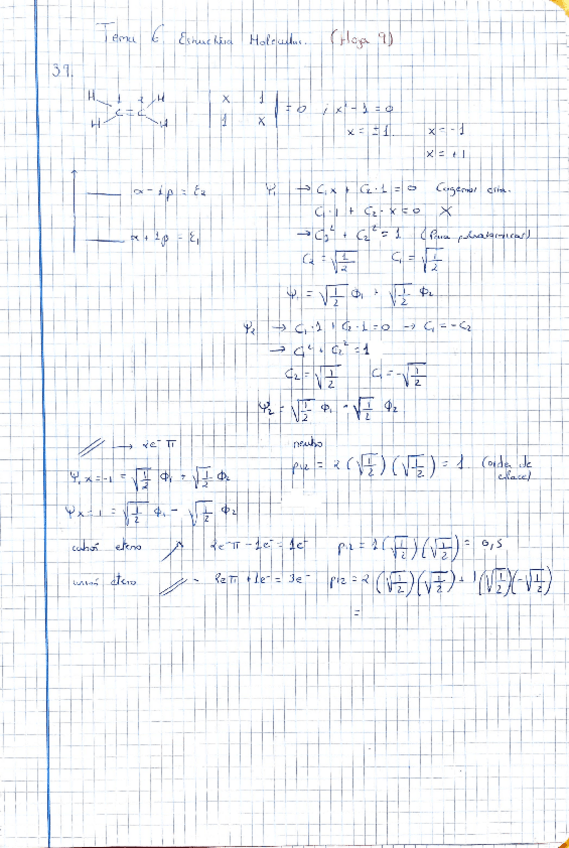 Tema 6. Estructura Molecular. (Hoja 9)
39.
H 1 2 H
C = C
H H
| x 1 |
| 1 x | = 0 ; x² - 1 = 0
x = ±1. x = -1
x = +1
α - 1β = ε₂
α + 1β = ε₁
Ψ₁ → C₁x + C₂·1 = 0 Cogemos una.
C₁·1 + C₂·x = 0 X
→ C₁² + C₂² = 1
C₂ = √(1/2) C₁ = √(1/2)
Ψ₁ = √(1/2) Φ₁ + √(1/2) Φ₂
Ψ₂ → C₁·1 + C₂·1 = 0 → C₁ = -C₂
→ C₁² + C₂² = 1
C₂ = √(1/2) C₁ = -√(1/2)
Ψ₂ = √(1/2) Φ₁ - √(1/2) Φ₂
→ 2e⁻ π
neutro
p₁₂ = 2 (√(1/2)) (√(1/2)) = 1 (orden de enlace)
Ψ₁ x=-1 = √(1/2) Φ₁ + √(1/2) Φ₂
Ψ x=1 = √(1/2) Φ₁ - √(1/2) Φ₂
catión eteno 2e⁻π - 1e⁻ = 1e⁻ p₁₂ = 1 (√(1/2)) (√(1/2)) = 0,5
anión eteno - 2eπ + 1e⁻ = 3e⁻ p₁₂ = 2 (√(1/2)) (√(1/2)) + 1 (√(1/2)) (-√(1/2))
=